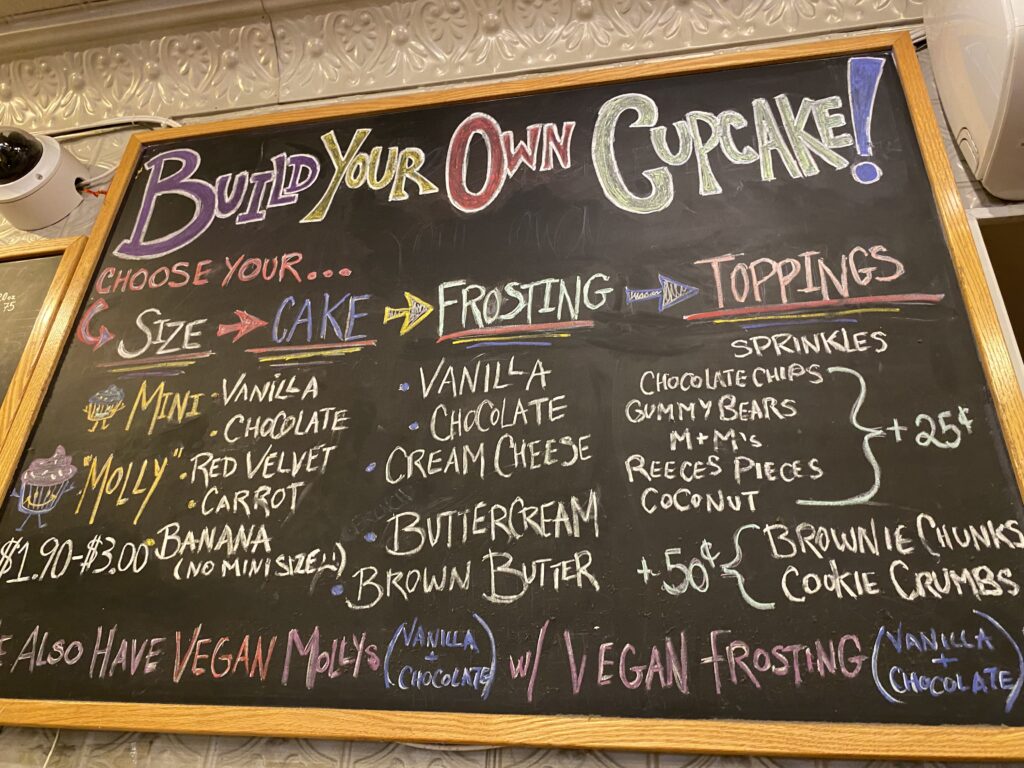 BUILD YOUR OWN CUPCAKE!
CHOOSE YOUR...
SIZE
MINI
"MOLLY"
$1.90-$3.00
CAKE
• VANILLA
• CHOCOLATE
• RED VELVET
• CARROT
• BANANA
(NO MINI SIZE :()
FROSTING
• VANILLA
• CHOCOLATE
• CREAM CHEESE
• BUTTERCREAM
• BROWN BUTTER
TOPPINGS
SPRINKLES
CHOCOLATE CHIPS
GUMMY BEARS
M+M's
REECES PIECES
COCONUT
+25¢
+50¢
BROWNIE CHUNKS
COOKIE CRUMBS
ALSO HAVE VEGAN MOLLYS (VANILLA + CHOCOLATE) w/ VEGAN FROSTING (VANILLA + CHOCOLATE)
75